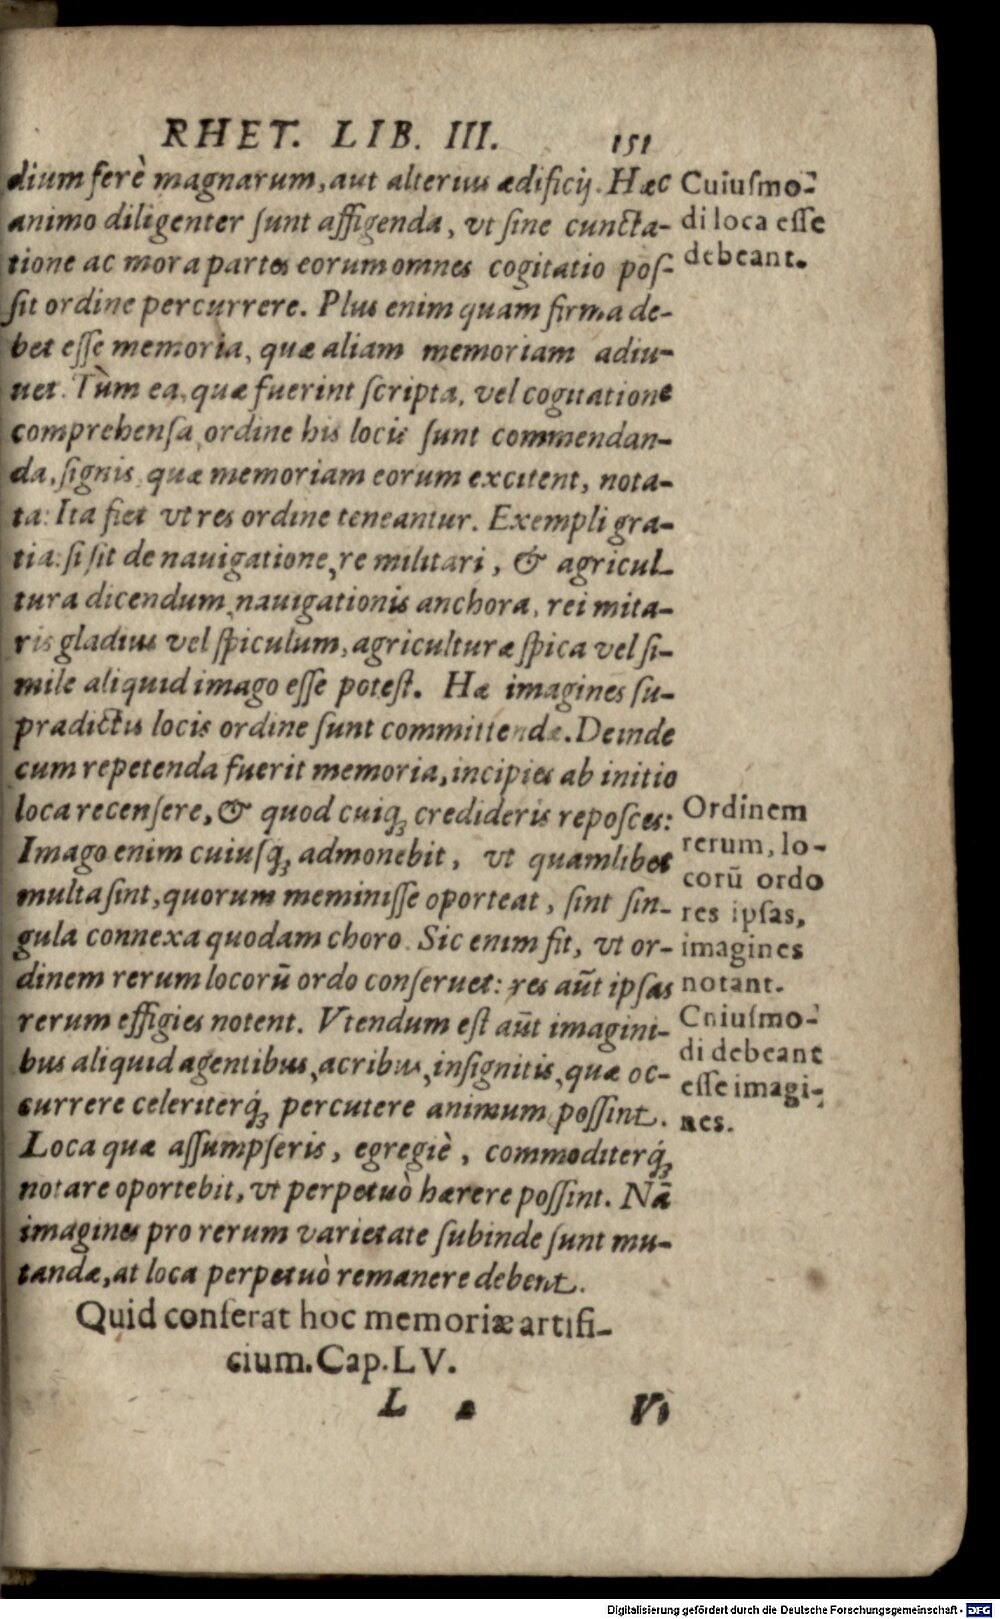 RHET. LIB. III. 151
dium ferè magnarum, aut alterius ædificij. Hæc
animo diligenter sunt affigenda, vt sine cuncta-
tione ac mora partes eorum omnes cogitatio pos-
sit ordine percurrere. Plus enim quam firma de-
bet esse memoria, quæ aliam memoriam adiu-
uet. Tùm ea, quæ fuerint scripta, vel cogitatione
comprehensa ordine his locis sunt commendan-
da, signis quæ memoriam eorum excitent, nota-
ta: Ita fiet vt res ordine teneantur. Exempli gra-
tia: si sit de nauigatione, re militari, & agricul-
tura dicendum, nauigationis anchora, rei mita-
ris gladius vel spiculum, agriculturæ spica vel si-
mile aliquid imago esse potest. Hæ imagines su-
pradictis locis ordine sunt committendæ. Deinde
cum repetenda fuerit memoria, incipies ab initio
loca recensere, & quod cuiq́; credideris reposces:
Imago enim cuiusq́; admonebit, vt quamlibet
multa sint, quorum meminisse oporteat, sint sin-
gula connexa quodam choro. Sic enim fit, vt or-
dinem rerum locorū ordo conseruet: res aūt ipsas
rerum effigies notent. Vtendum est aūt imagini-
bus aliquid agentibus, acribus, insignitis, quæ oc-
currere celeriterq́; percutere animum possint.
Loca quæ assumpseris, egregiè, commoditerq́;
notare oportebit, vt perpetuò hærere possint. Nā
imagines pro rerum varietate subinde sunt mu-
tandæ, at loca perpetuò remanere debent.
Quid conferat hoc memoriæ artifi-
cium. Cap. LV.
L 2 Vi
Cuiusmo-
di loca esse
debeant.
Ordinem
rerum, lo-
corū ordo
res ipsas,
imagines
notant.
Cuiusmo-
di debeant
esse imagi-
nes.
Digitalisierung gefördert durch die Deutsche Forschungsgemeinschaft - DFG